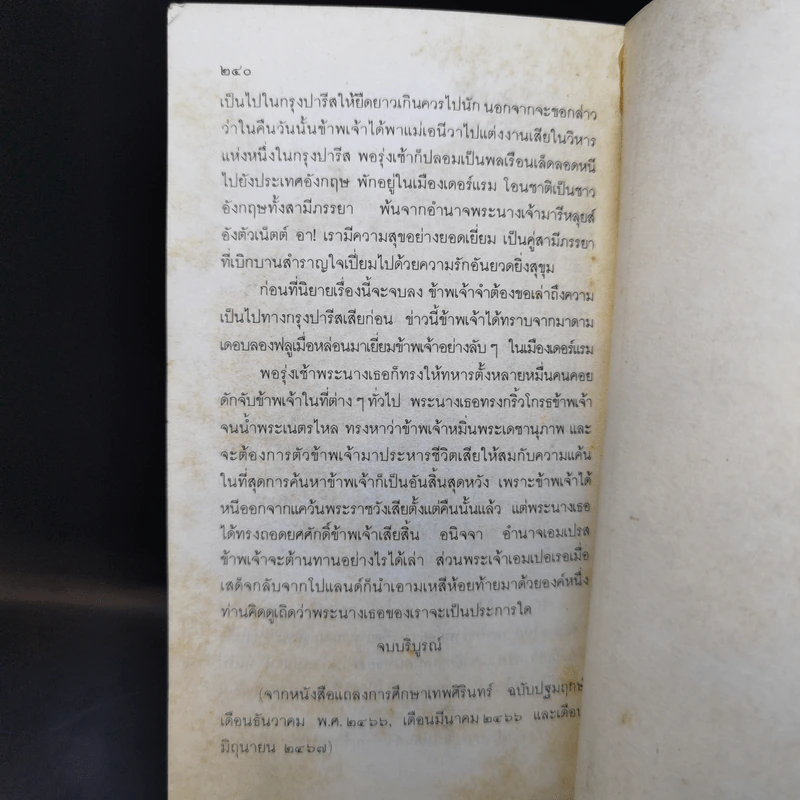 ๒๔๐
เป็นไปในกรุงปารีสให้ยืดยาวเกินควรไปนัก นอกจากจะขอกล่าว
ว่าในคืนวันนั้นข้าพเจ้าได้พาแม่เอนีวาไปแต่งงานเสียในวิหาร
แห่งหนึ่งในกรุงปารีส พอรุ่งเช้าก็ปลอมเป็นพลเรือนเล็ดลอดหนี
ไปยังประเทศอังกฤษ พักอยู่ในเมืองเดอร์แรม โอนชาติเป็นชาว
อังกฤษทั้งสามีภรรยา พ้นจากอำนาจพระนางเจ้ามารีหลุยส์
อังตัวเน็ตต์ อา! เรามีความสุขอย่างยอดเยี่ยม เป็นคู่สามีภรรยา
ที่เบิกบานสำราญใจเปี่ยมไปด้วยความรักอันยวดยิ่งสุขุม
ก่อนที่นิยายเรื่องนี้จะจบลง ข้าพเจ้าจำต้องขอเล่าถึงความ
เป็นไปทางกรุงปารีสเสียก่อน ข่าวนี้ข้าพเจ้าได้ทราบจากมาดาม
เดอบลองฟลูเมื่อหล่อนมาเยี่ยมข้าพเจ้าอย่างลับ ๆ ในเมืองเดอร์แรม
พอรุ่งเช้าพระนางเธอก็ทรงให้ทหารตั้งหลายหมื่นคนคอย
ดักจับข้าพเจ้าในที่ต่าง ๆ ทั่วไป พระนางเธอทรงกริ้วโกรธข้าพเจ้า
จนน้ำพระเนตรไหล ทรงหาว่าข้าพเจ้าหมิ่นพระเดชานุภาพ และ
จะต้องการตัวข้าพเจ้ามาประหารชีวิตเสียให้สมกับความแค้น
ในที่สุดการค้นหาข้าพเจ้าก็เป็นอันสิ้นสุดหวัง เพราะข้าพเจ้าได้
หนีออกจากแคว้นพระราชวังเสียตั้งแต่คืนนั้นแล้ว แต่พระนางเธอ
ได้ทรงถอดยศศักดิ์ข้าพเจ้าเสียสิ้น อนิจจา อำนาจเอมเปรส
ข้าพเจ้าจะต้านทานอย่างไรได้เล่า ส่วนพระเจ้าเอมเปอเรอเมื่อ
เสด็จกลับจากโปแลนด์ก็นำเอามเหสีห้อยท้ายมาด้วยองค์หนึ่ง
ท่านคิดดูเถิดว่าพระนางเธอของเราจะเป็นประการใด
จบบริบูรณ์
(จากหนังสือแถลงการศึกษาเทพศิรินทร์ ฉบับปฐมฤกษ์
เดือนธันวาคม พ.ศ. ๒๔๖๖, เดือนมีนาคม ๒๔๖๖ และเดือน
มิถุนายน ๒๔๖๗)